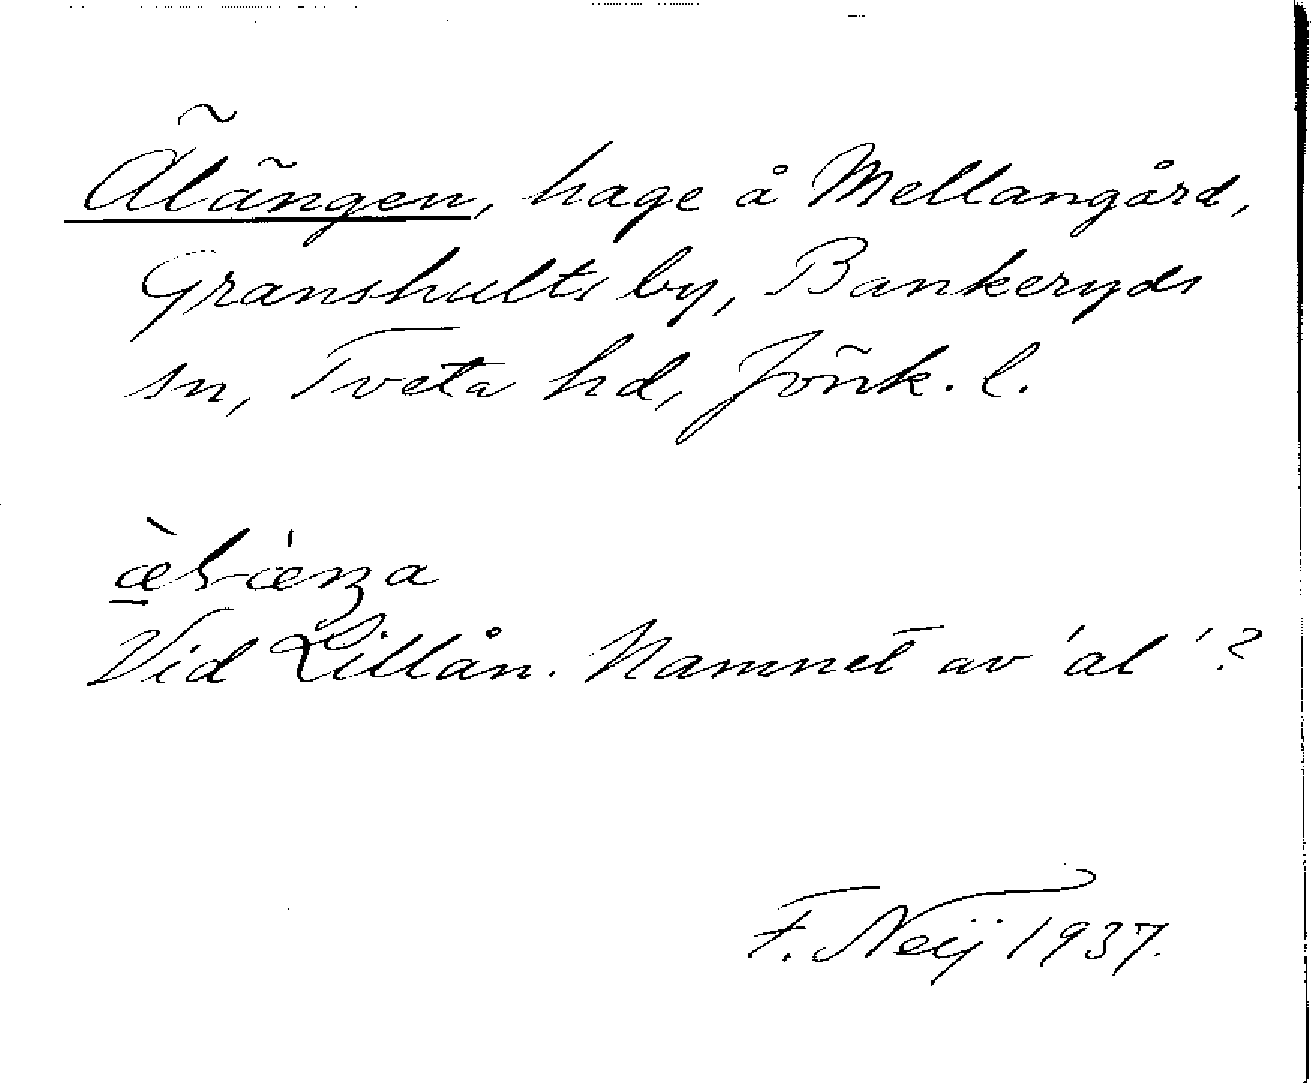 Älängen, hage å Mellangård,
Granshults by, Bankeryds
sn, Tveta hd, Jönk. l.
Vid Lillån. Namnet av 'al'?
F. Neij 1937.